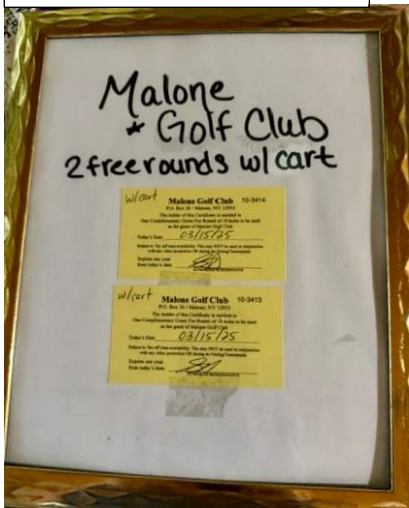 Malone
* Golf Club
2 free rounds w/ cart
w/cart
Malone Golf Club 10-3414
P.O. Box 26 • Malone, NY 12953
The holder of this Certificate is entitled to
One Complimentary Green Fee Round of 18 holes to be used
as the guest of Malone Golf Club
Today's Date 03/15/25
Subject to Tee off time availability. This may NOT be used in conjunction
with any other promotion OR during an Outing/Tournament.
Expires one year
from today's date
w/cart
Malone Golf Club 10-3413
P.O. Box 26 • Malone, NY 12953
The holder of this Certificate is entitled to
One Complimentary Green Fee Round of 18 holes to be used
as the guest of Malone Golf Club
Today's Date 03/15/25
Subject to Tee off time availability. This may NOT be used in conjunction
with any other promotion OR during an Outing/Tournament.
Expires one year
from today's date